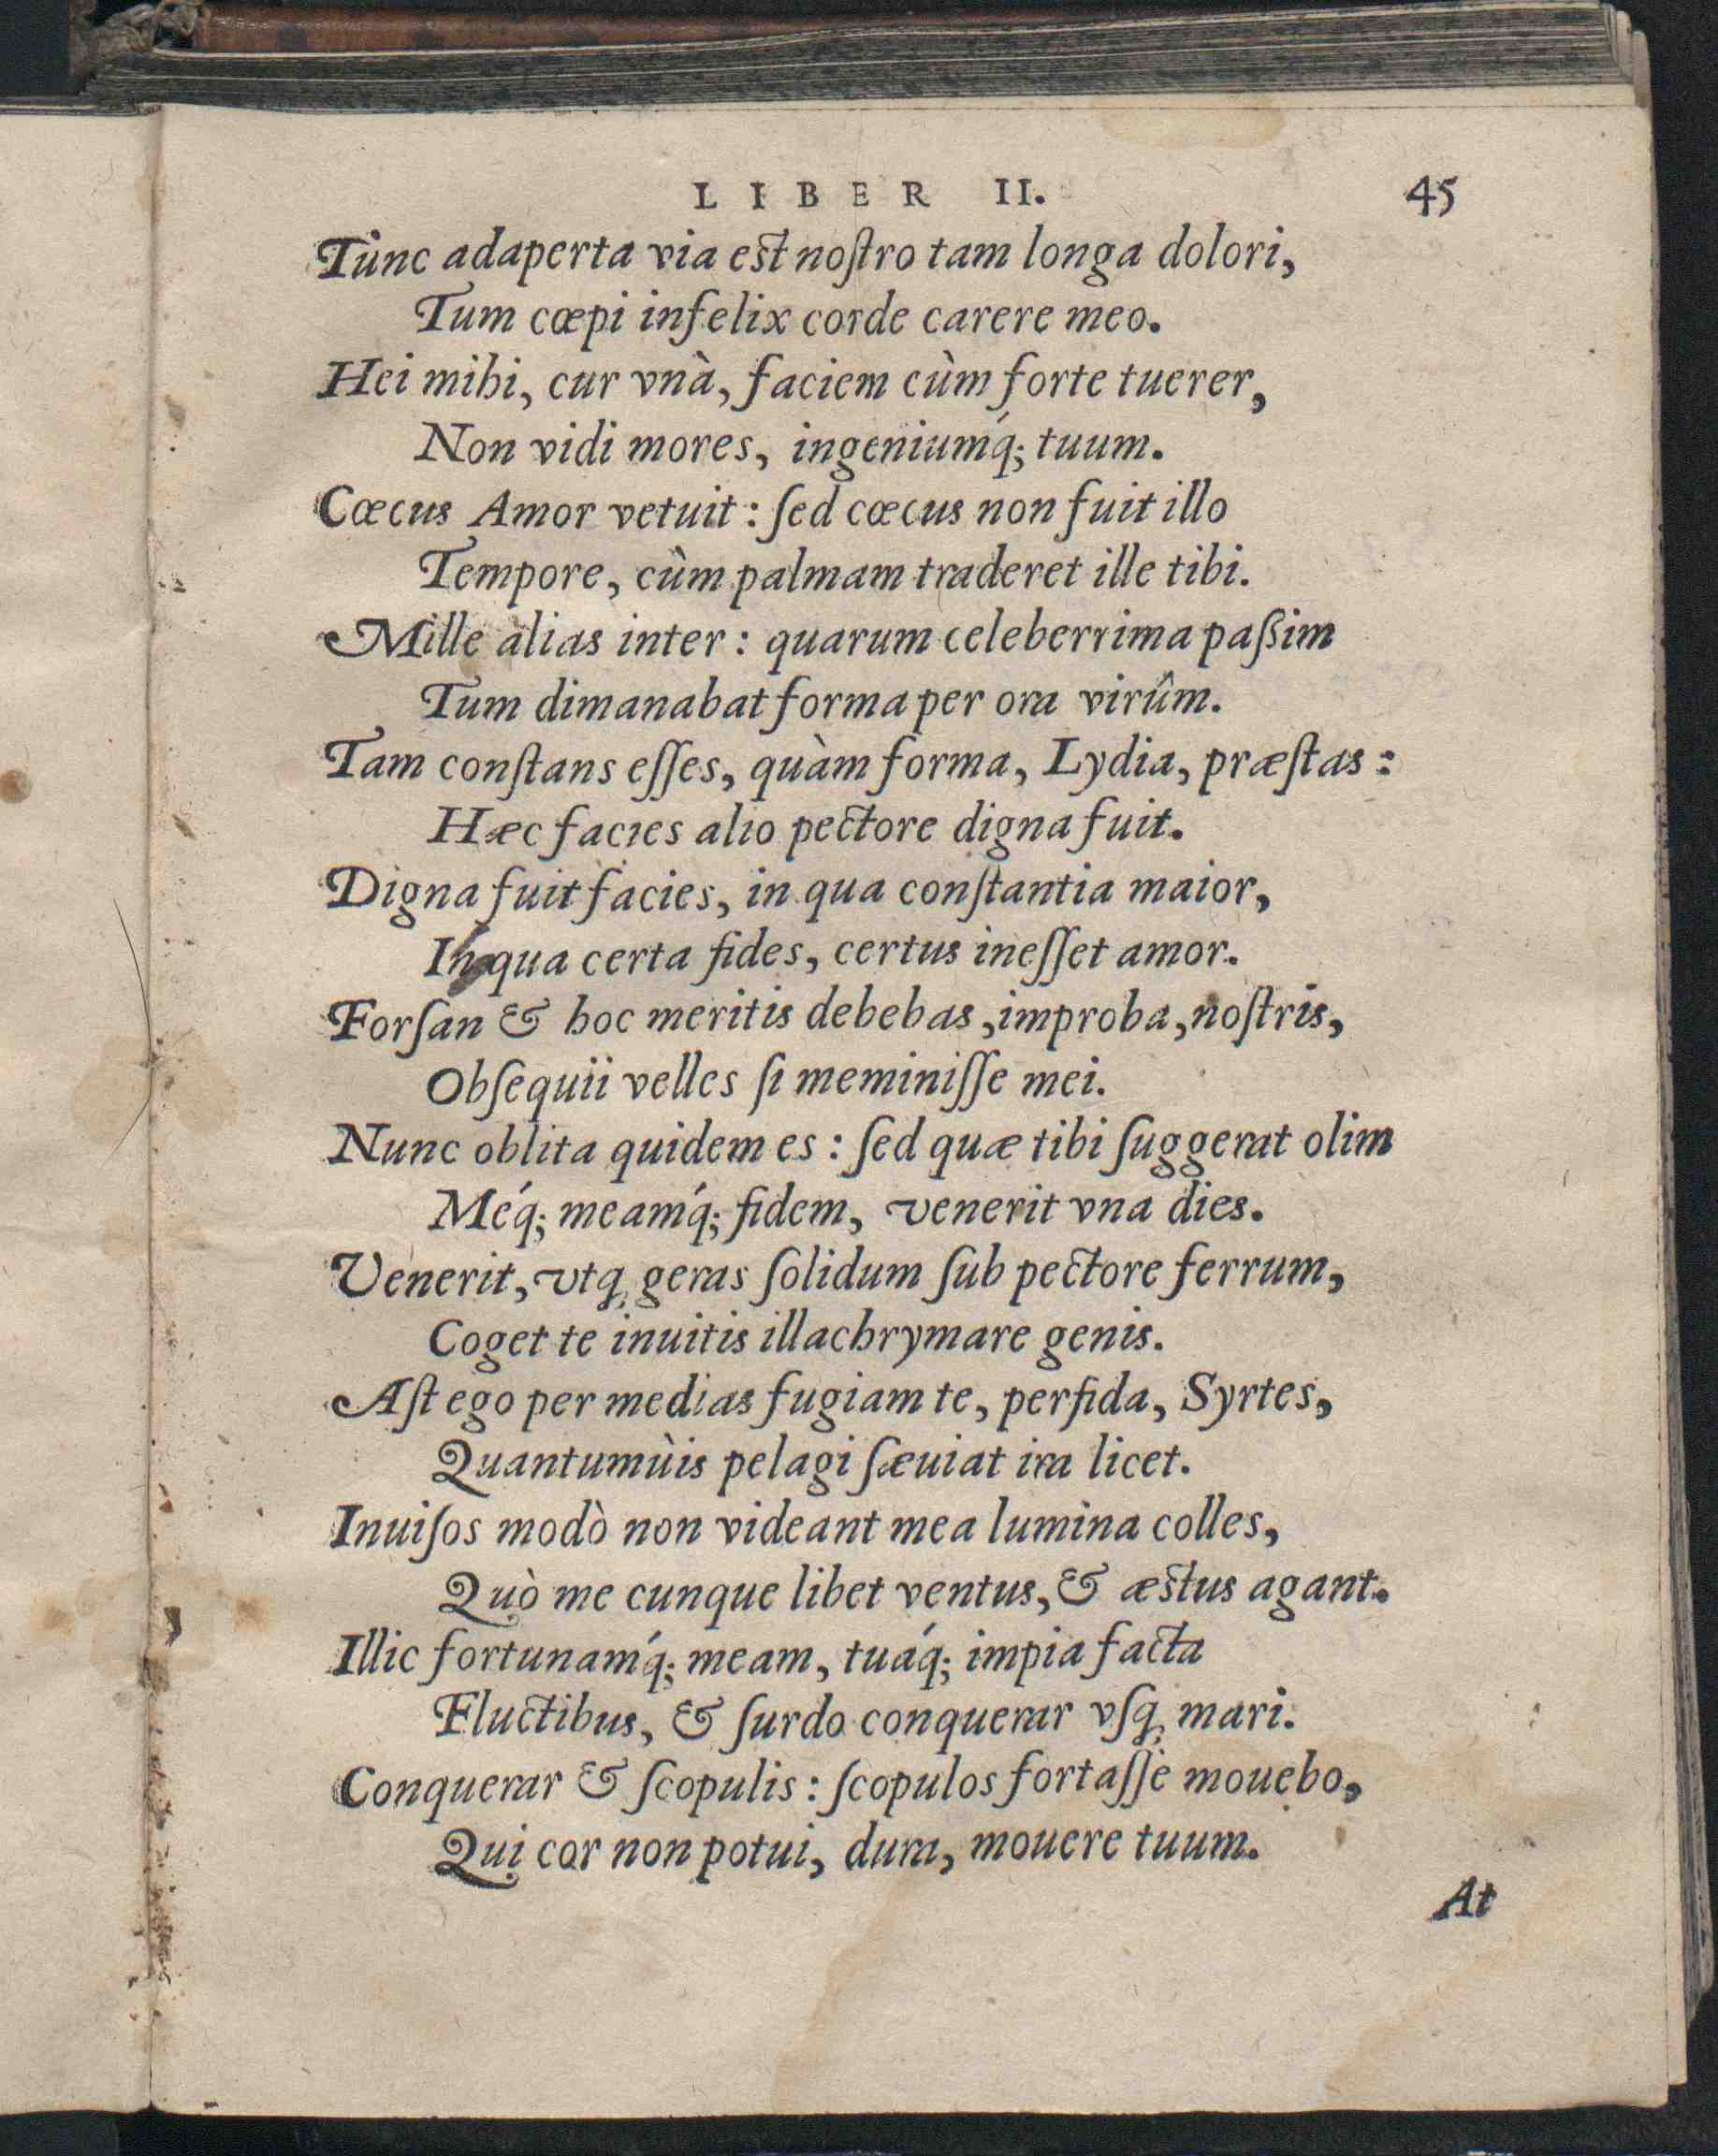 LIBER II. 45
Tunc adaperta via est noſtro tam longa dolori,
Tum cœpi infelix corde carere meo.
Hei mihi, cur vnà, faciem cùm forte tuerer,
Non vidi mores, ingeniumq́; tuum.
Cœcus Amor vetuit: ſed cœcus non fuit illo
Tempore, cùm palmam traderet ille tibi.
Mille alias inter: quarum celeberrima paßim
Tum dimanabat forma per ora virûm.
Tam conſtans eſſes, quàm forma, Lydia, præſtas:
Hæc facies alio pectore digna fuit.
Digna fuit facies, in qua conſtantia maior,
In qua certa fides, certus ineſſet amor.
Forſan & hoc meritis debebas, improba, noſtris,
Obſequii velles ſi meminiſſe mei.
Nunc oblita quidem es: ſed quæ tibi ſuggerat olim
Méq; meamq́; fidem, venerit vna dies.
Venerit, vtq; geras ſolidum ſub pectore ferrum,
Coget te inuitis illachrymare genis.
Aſt ego per medias fugiam te, perfida, Syrtes,
Quantumùis pelagi ſæuiat ira licet.
Inuiſos modò non videant mea lumina colles,
Quò me cunque libet ventus, & æstus agant.
Illic fortunamq́; meam, tuáq; impia facta
Fluctibus, & ſurdo conquerar vſq; mari.
Conquerar & ſcopulis: ſcopulos fortaſſe mouebo,
Qui cor non potui, dura, mouere tuum.
At